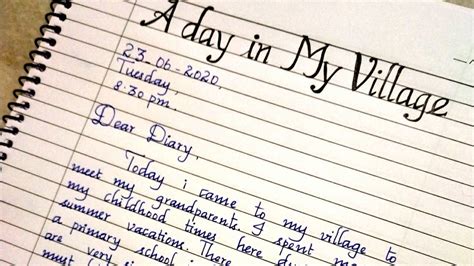 A day in My Village
23-06-2020,
Tuesday,
8:30 pm.
Dear Diary,
Today i came to my village to
meet my grandparents. I spent
my childhood times here
summer vacations. There
a primary school
are very
must